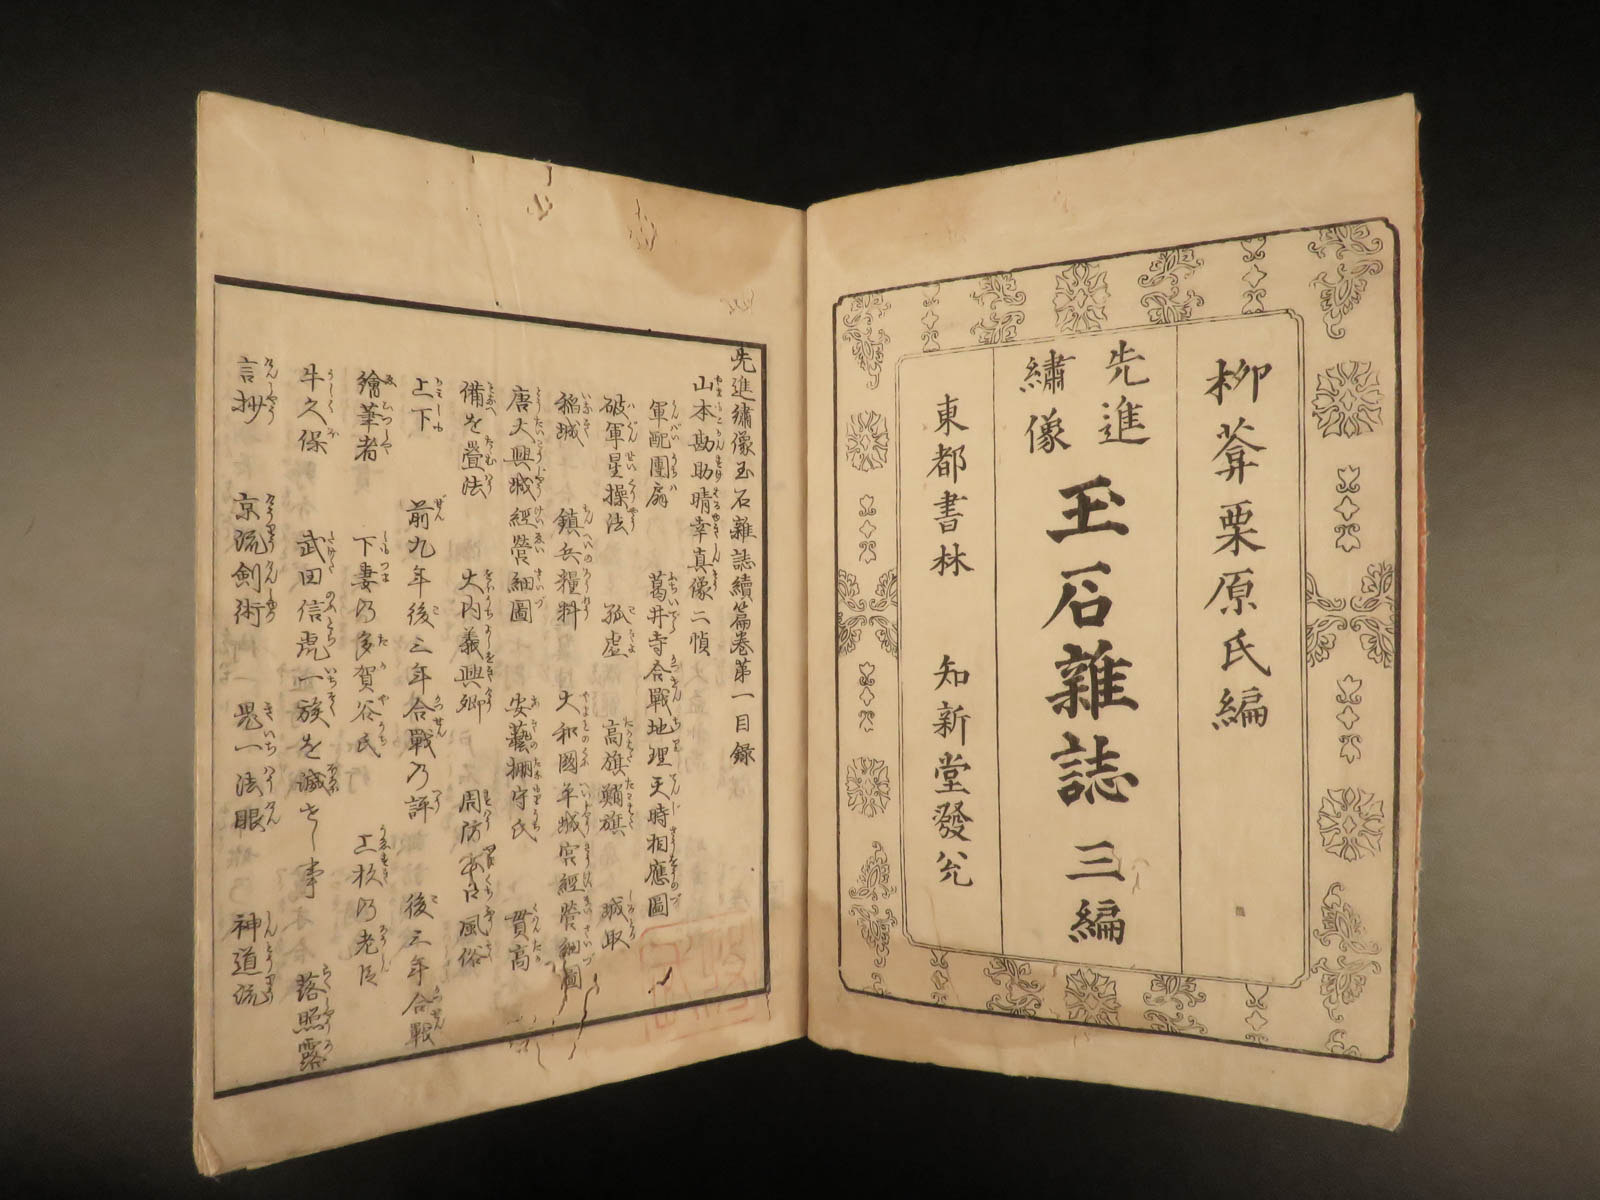 柳葊栗原氏編
先進繡像 玉石雜誌 三編
東都書林 知新堂發兌
先進繡像玉石雜誌續篇卷第一目録
山本勘助晴幸真像二幀
軍配團扇 葛井寺合戰地理天時相應圖
破軍星操法 孤虚 高旗 城取
稲城 鎮兵糧料 大和國平城宮經營細圖
唐大興城經營細圖 安藝棚守氏 貫高
備を疊法 大内義興卿 周防山口風俗
上下 前九年後三年合戰乃評 後三年合戰
繪筆者 下妻乃多賀谷氏 上杦乃老臣
牛久保 武田信虎一族を滅せし事 落照露
言抄 京流劍術 鬼一法眼 神道流